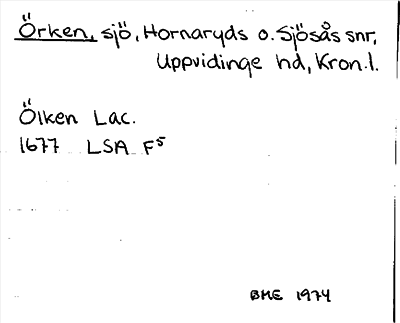 Örken, sjö, Hornaryds o. Sjösås snr,
Uppvidinge hd, Kron.l.
Ölken Lac.
1677 LSA F5
BME 1974